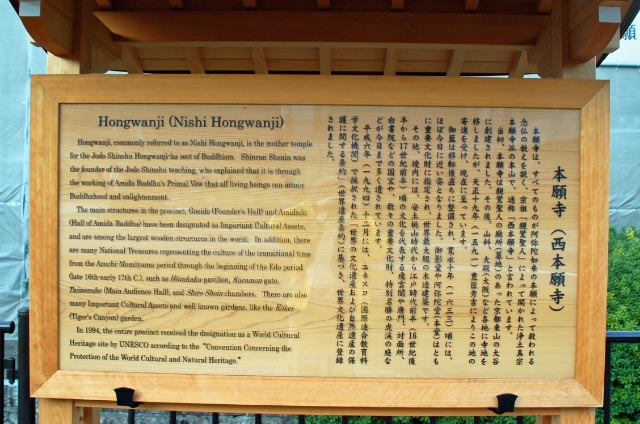 Hongwanji (Nishi Hongwanji)
Hongwanji, commonly referred to as Nishi Hongwanji, is the mother temple
for the Jodo Shinshu Hongwanji-ha sect of Buddhism. Shinran Shonin was
the founder of the Jodo Shinshu teaching, who explained that it is through
the working of Amida Buddha's Primal Vow that all living beings can attain
Buddhahood and enlightenment.
The main structures in the precinct, Goeido (Founder's Hall) and Amidado
(Hall of Amida Buddha) have been designated as Important Cultural Assets,
and are among the largest wooden structures in the world. In addition, there
are many National Treasures representing the culture of the transitional time
from the Azuchi-Momiyama period through the beginning of the Edo period
(late 16th early 17th C.), such as Hiunkaku pavilion, Karamon gate,
Taimensho (Main Audience Hall), and Shiro Shoin chambers. There are also
many Important Cultural Assets and well known gardens, like the Kokei
(Tiger's Canyon) garden.
In 1994, the entire precinct received the designation as a World Cultural
Heritage site by UNESCO according to the "Convention Concerning the
Protection of the World Cultural and Natural Heritage."
本願寺（西本願寺）
本願寺は、すべてのものが阿弥陀如来の本願によって救われる
念仏の教えを説く、宗祖「親鸞聖人」によって開かれた浄土真宗
本願寺派の本山で、通称「西本願寺」と言われています。
当初、本願寺は親鸞聖人の廟所（墓地）のあった京都東山の大谷
に創建されました。その後、山科、大坂（大阪）など各地に寺地を
移しましたが、天正十九年（一五九一）豊臣秀吉によりこの地の
寄進を受け、現在に至っています。
伽藍は移転後直ちに整備され、寛永十年（一六三三）頃には、
ほぼ今日に近い姿となりました。御影堂や阿弥陀堂（本堂）はとも
に重要文化財に指定され、世界最大級の木造建築です。
その他、境内には、安土桃山時代から江戸時代前半（16世紀後
半から17世紀前半）頃の文化を代表する飛雲閣や唐門、対面所、
白書院などの国宝や、数々の重要文化財、特別名勝の虎渓の庭な
どが今日まで多く遺されています。
平成六年（一九九四）十二月には、ユネスコ（国際連合教育科
学文化機関）で採択された「世界の文化遺産および自然遺産の保
護に関する条約」（世界遺産条約）に基づき、世界文化遺産に登録
されました。
願